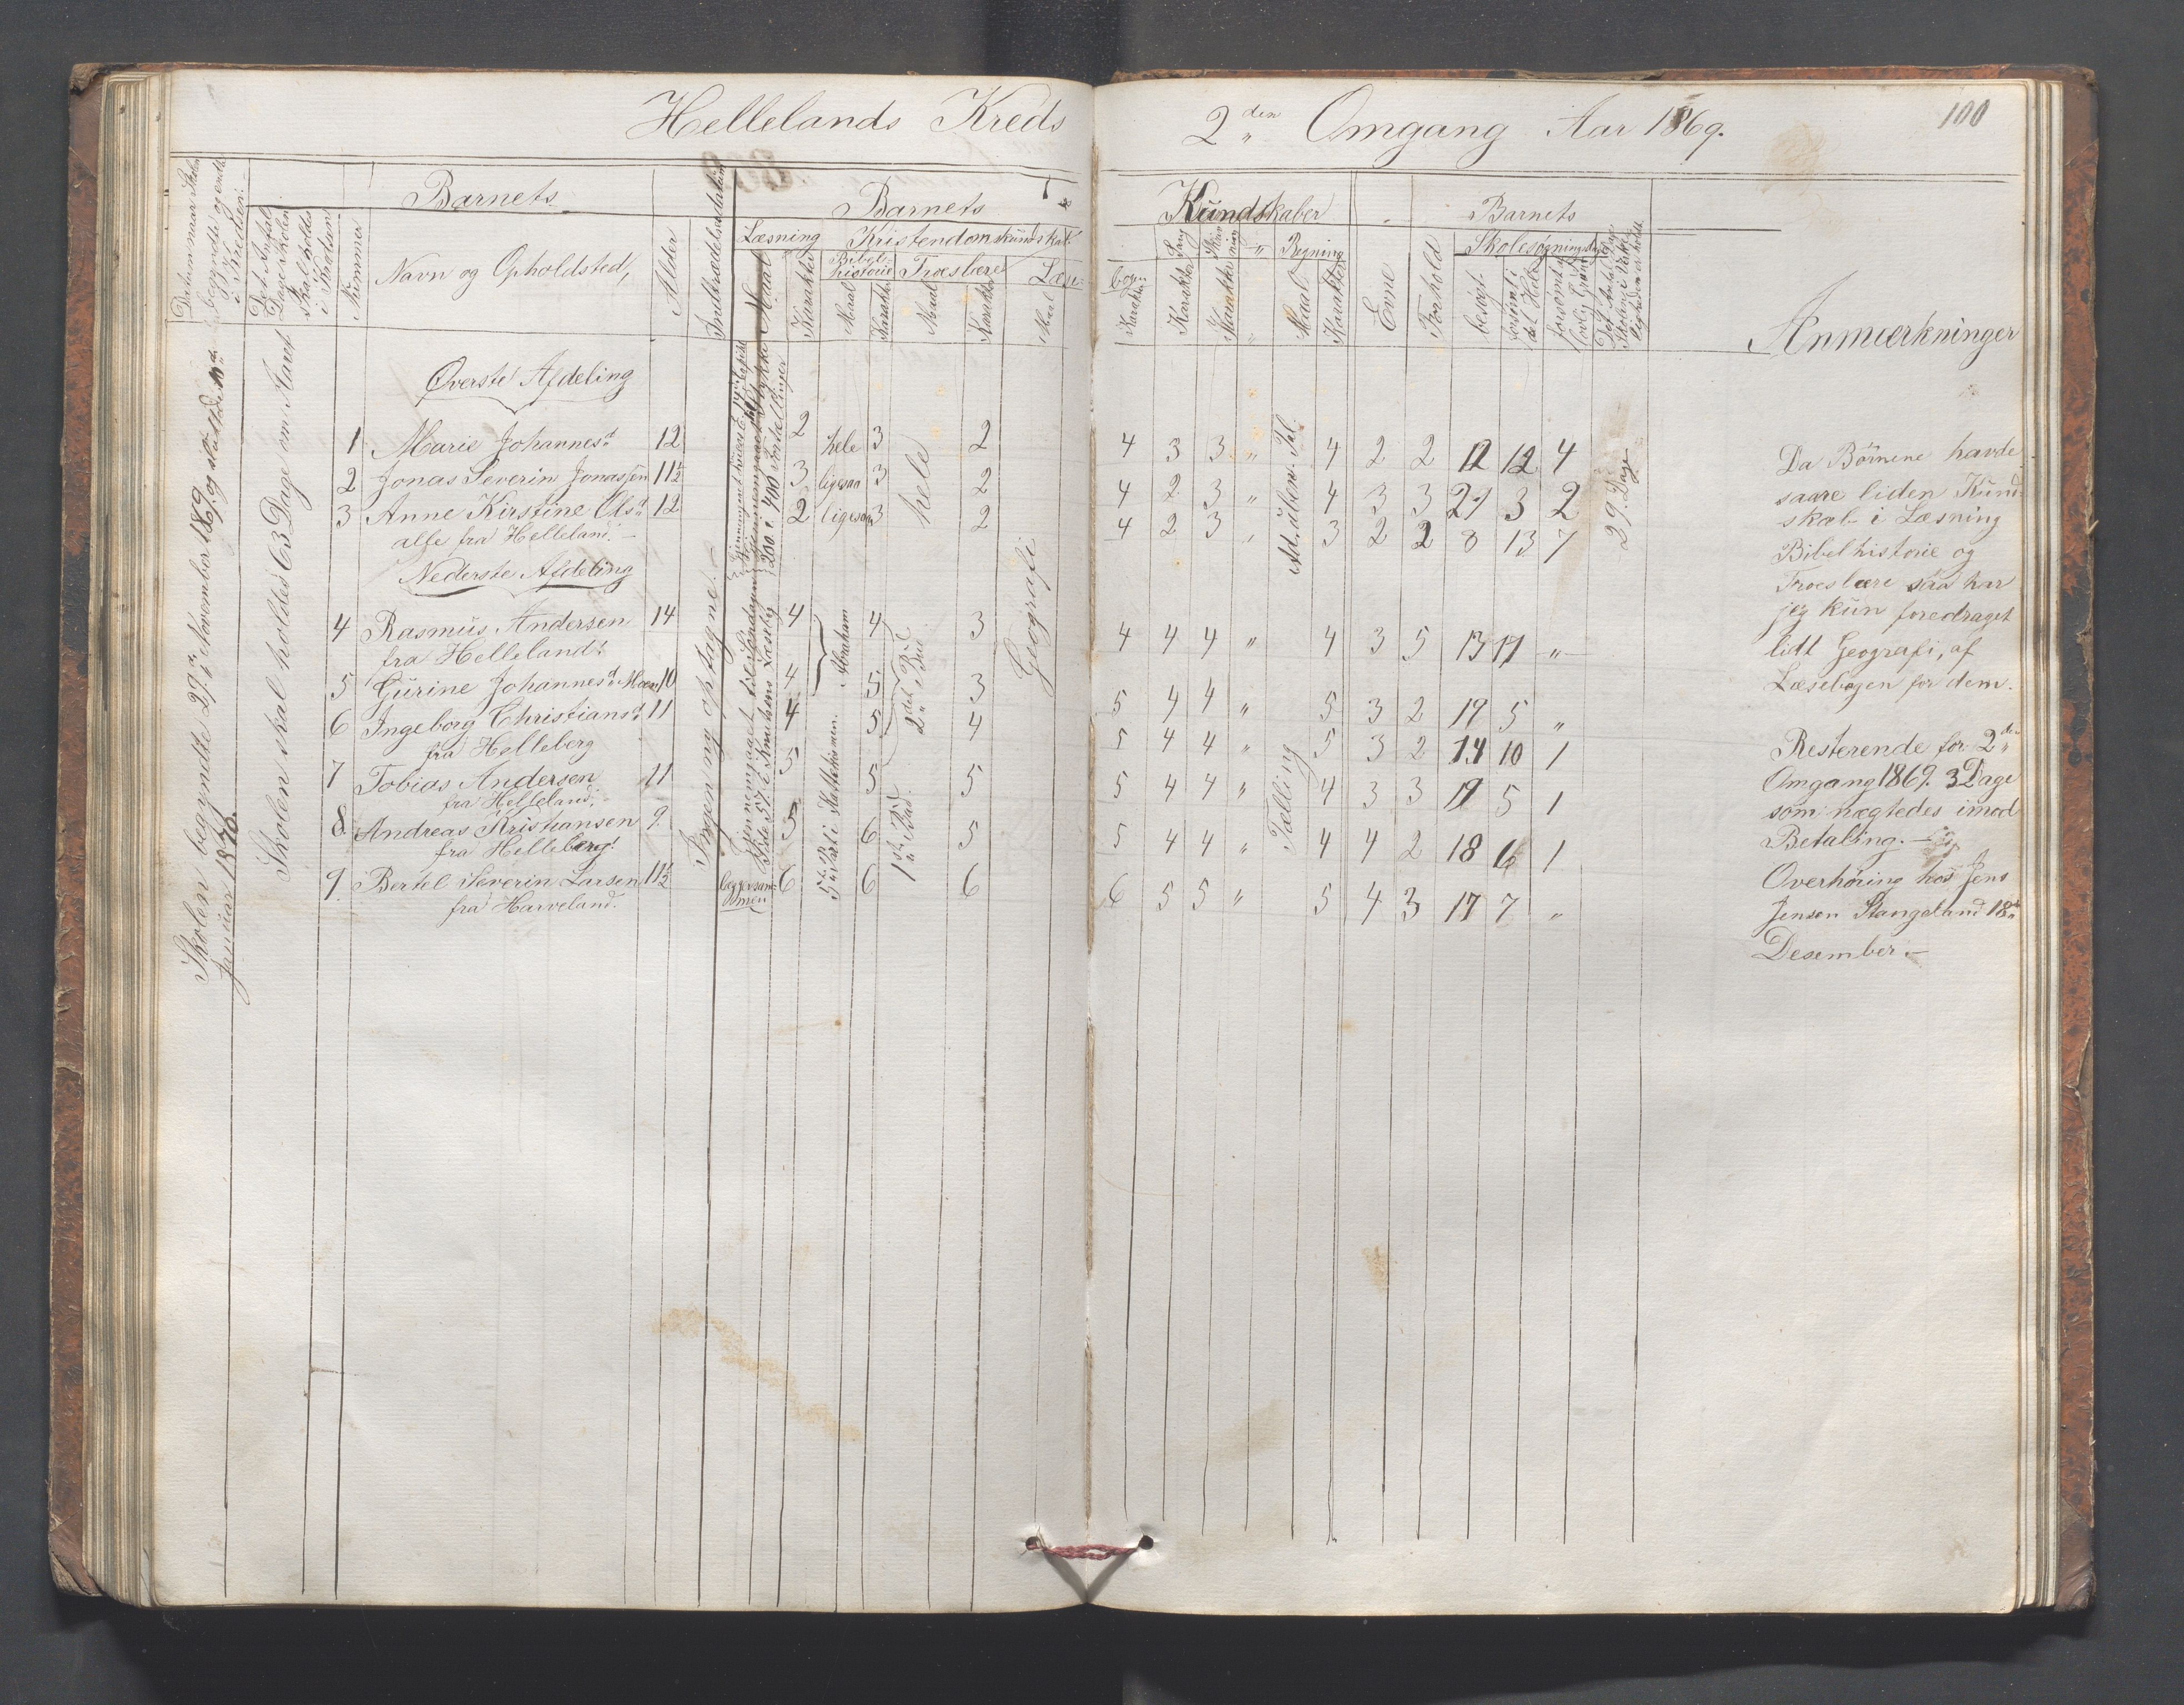 Hellelands Kreds
2den Omgang Aar 1869.
100
Barnets
Barnets
Kundskaber
Barnets
Læsning
Kristendomskundskab
Bibelhistorie
Troeslære
Læse-
bogen
Sang
Skrivning
"
Regning
Skolesøgning
Nummer
Navn og Opholdsted,
Alder
Indtrædelsesdatum
Maal
Karakter
Maal
Karakter
Maal
Karakter
Maal
Karakter
Karakter
Karakter
Maal
Karakter
Evne
Forhold
besøgt
forsømt i det Hele
forsømt af lovlig Grund
Anmærkninger
Skolen begyndte 29de November 1869 og
Januar 1870.
Skolen skal holdes 63 Dage om Aaret
Ingen ny optagne.
Øverste Afdeling
1 Marie Johannesd. 12 2 hele 3 2 4 3 3 " 4 2 2 12 12 4
2 Jonas Severin Jonassen 11½ 3 ligesaa 3 hele 2 4 2 3 " 4 3 3 21 3 2
3 Anne Kirstine Olsd. 12 2 ligesaa 3 2 4 2 3 " 3 2 2 8 13 7
alle fra Helleland.
29. Dage
Nederste Afdeling
4 Rasmus Andersen 14 4 4 3 4 4 4 " 4 3 5 13 11 "
fra Helleland.
5 Gurine Johannesd. Moen 10 4 Abraham 5 2det Bud 3 5 4 4 " 5 3 2 19 5 "
6 Ingeborg Christiansd. 11 4 5 4 5 4 4 " 5 3 2 14 10 1
fra Helleberg
7 Tobias Andersen 11 5 5 5 5 4 4 " 4 3 3 19 5 1
fra Helleland.
8 Andreas Kristiansen 9. 5 6 1ste Bud 5 5 4 4 " 4 4 2 18 6 1
fra Helleberg.
9. Bertel Severin Larsen 11½ 6 6 6 6 5 5 " 5 4 3 17 7 "
fra Harveland.
Geografi
Tælling
Da Børnene havde
saare liden Kund-
skab i Læsning
Bibelhistorie og
Troeslære saa har
jeg kun foredraget
lidt Geografi, af
Læsebogen for dem.
Resterende for 2den
Omgang 1869. 3 Dage
som nægtedes imod
Betaling. —
Overhøring hos Jens
Jensen Stangeland 18de
Desember. —